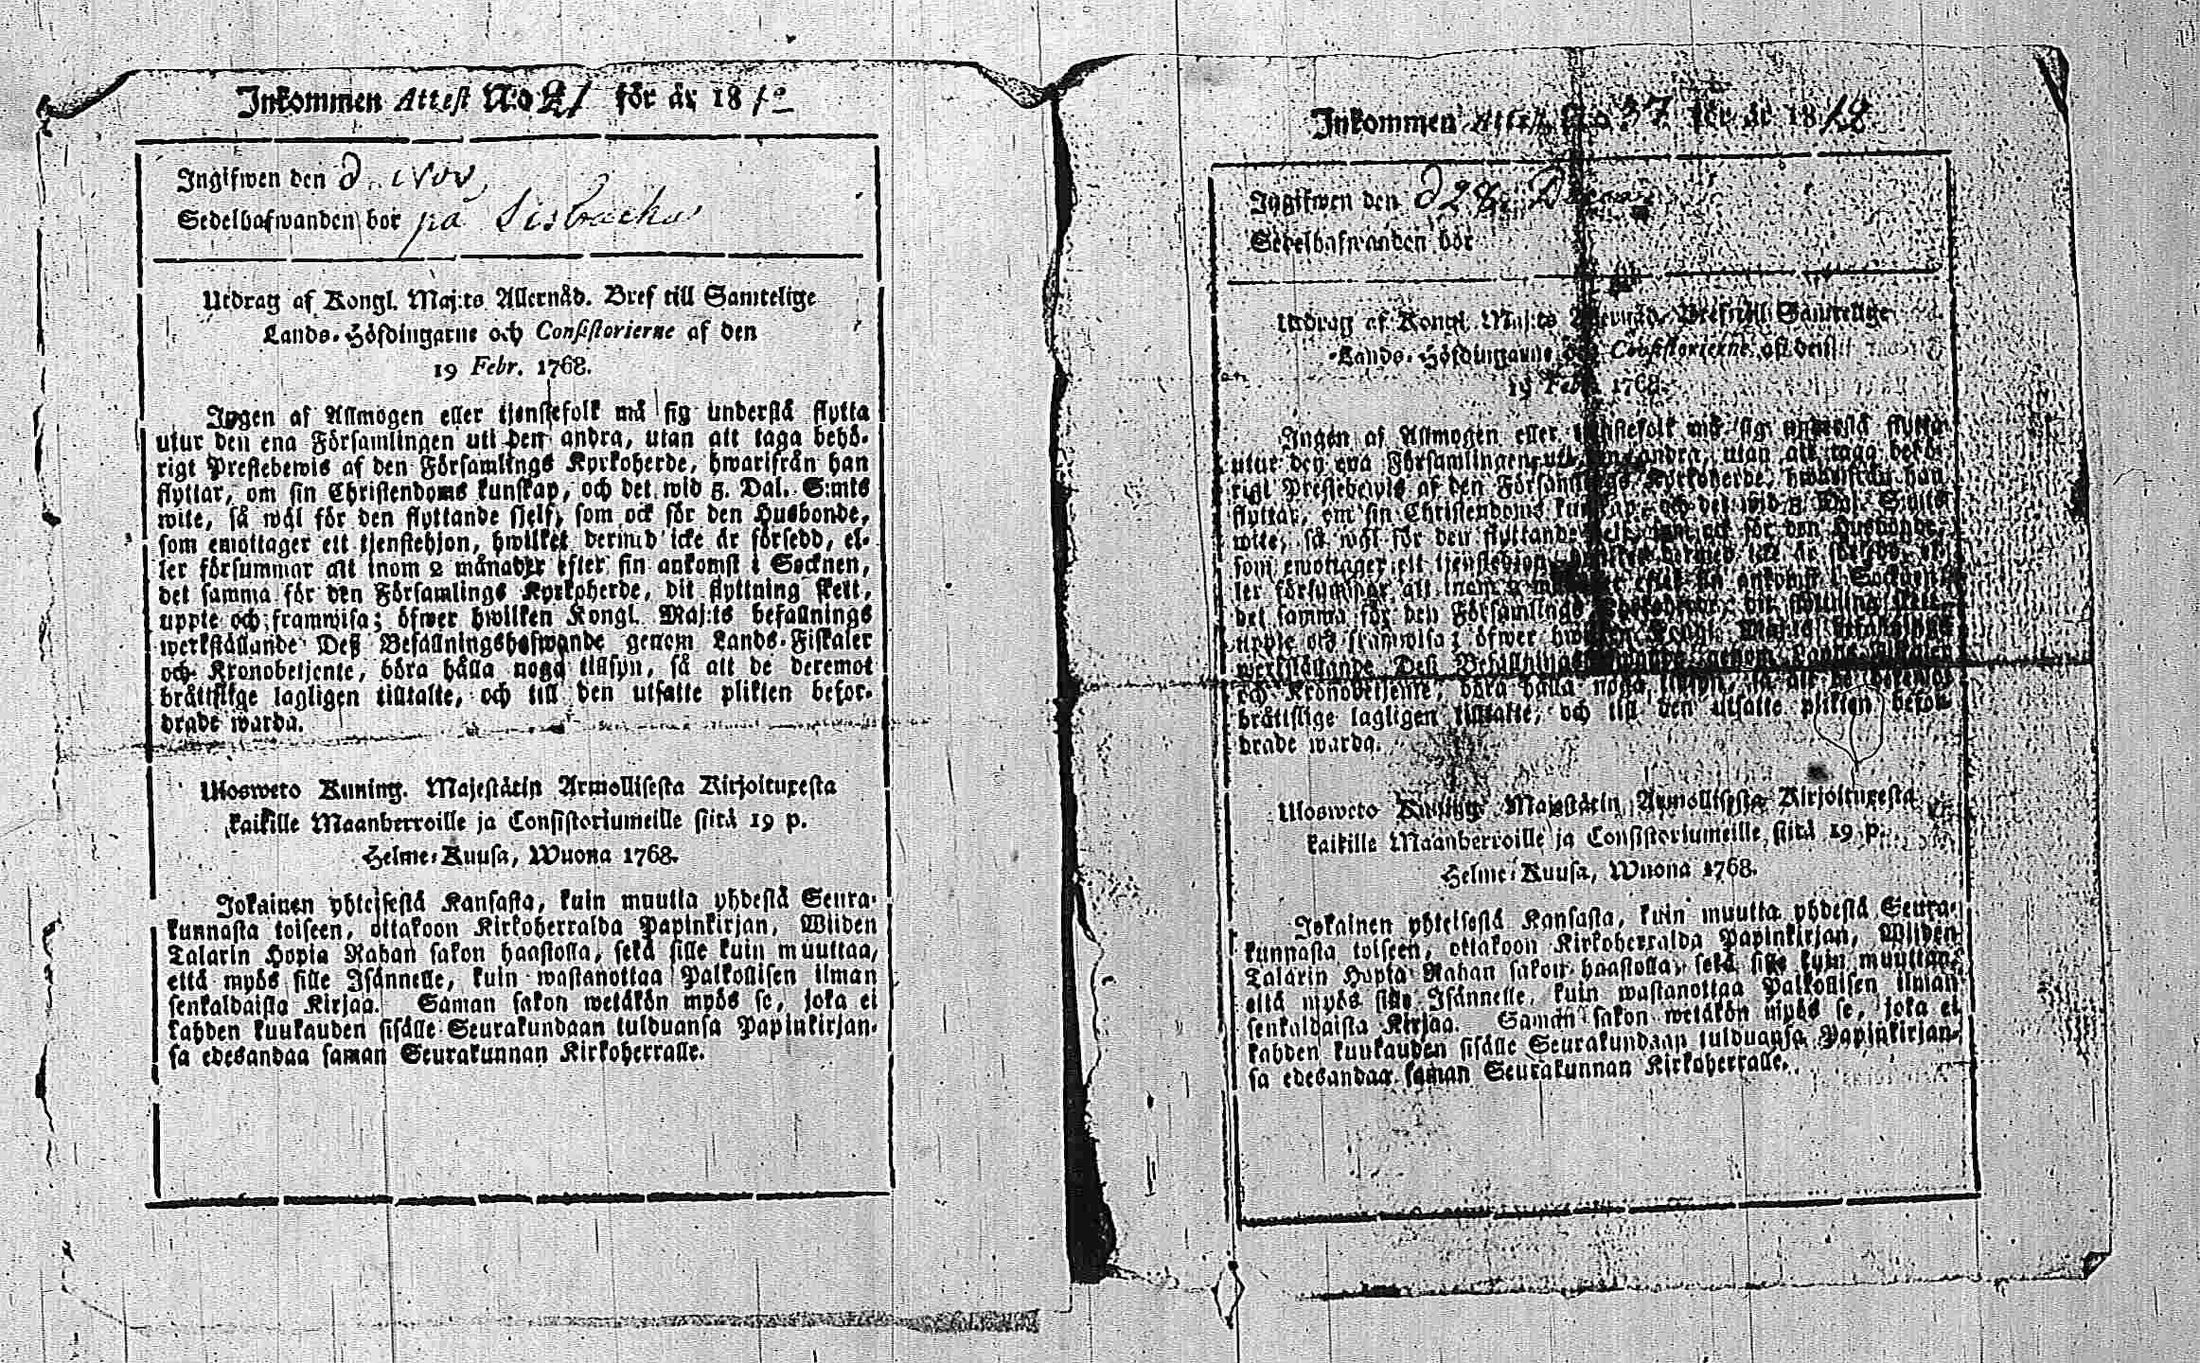 Inkommen Attest N:o 21 för år 18
Ingifwen den d. Nov.
Sedelhafwanden bor på
Utdrag af Kongl. Maj:ts Allernåd. Bref till Samtelige
Lands-Höfdingarne och Consistorierne af den
19 Febr. 1768.
Ingen af Allmogen eller tjenstefolk må sig understå flytta
utur den ena Församlingen uti den andra, utan att taga behö-
rigt Prestebewis af den Församlings Kyrkoherde, hwarifrån han
flyttar, om sin Christendoms kunskap, och det wid 5. Dal. S:mts
wite, så wäl för den flyttande sjelf, som ock för den Husbonde,
som emottager ett tjenstehjon, hwilket dermed icke är försedd, el-
ler försummar att inom 2 månader efter sin ankomst i Socknen,
det samma för den Församlings Kyrkoherde, dit flyttning skett,
uppte och framwisa; öfwer hwilken Kongl. Maj:ts befallnings
werkställande Deß Befallningshafwande genom Lands-Fiskaler
och Kronobetjente, böra hålla noga tillsyn, så att de deremot
bråttslige lagligen tilltalte, och till den utsatte plikten befor-
drade warda.
Ulosweto Kuning. Majestätin Armollisesta Kirjoituxesta
kaikille Maanherroille ja Consistoriumeille siitä 19 p.
Helme-Kuusa, Wuona 1768.
Jokainen yhteisestä Kansasta, kuin muutta yhdestä Seura-
kunnasta toiseen, ottakoon Kirkoherralda Papinkirjan, Wiiden
Talarin Hopia Rahan sakon haastolla, sekä sille kuin muuttaa,
että myös sille Isännelle, kuin wastanottaa Palkollisen ilman
senkaldaista Kirjaa. Saman sakon wetäkön myös se, joka ei
kahden kuukauden sisälle Seurakundaan tulduansa Papinkirjan-
sa edesandaa saman Seurakunnan Kirkoherralle.
Inkommen Attest N:o 37 för år 1818
Ingifwen den d 28. Decem.
Sedelhafwanden bor
Utdrag af Kongl. Maj:ts Allernåd. Bref till Samtelige
Lands-Höfdingarne och Consistorierne af den
19 Febr. 1768.
Ingen af Allmogen eller tjenstefolk må sig understå flytta
utur den ena Församlingen uti den andra, utan att taga behö-
rigt Prestebewis af den Församlings Kyrkoherde, hwarifrån han
flyttar, om sin Christendoms kunskap, och det wid 5. Dal. S:mts
wite, så wäl för den flyttande sjelf, som ock för den Husbonde,
som emottager ett tjenstehjon, hwilket dermed icke är försedd, el-
ler försummar att inom 2 månader efter sin ankomst i Socknen,
det samma för den Församlings Kyrkoherde, dit flyttning skett,
uppte och framwisa; öfwer hwilken Kongl. Maj:ts befallnings
werkställande Deß Befallningshafwande genom Lands-Fiskaler
och Kronobetjente, böra hålla noga tillsyn, så att de deremot
bråttslige lagligen tilltalte, och till den utsatte plikten befor-
drade warda.
Ulosweto Kuning. Majestätin Armollisesta Kirjoituxesta
kaikille Maanherroille ja Consistoriumeille siitä 19 p.
Helme-Kuusa, Wuona 1768.
Jokainen yhteisestä Kansasta, kuin muutta yhdestä Seura-
kunnasta toiseen, ottakoon Kirkoherralda Papinkirjan, Wiiden
Talarin Hopia Rahan sakon haastolla, sekä sille kuin muuttaa,
että myös sille Isännelle, kuin wastanottaa Palkollisen ilman
senkaldaista Kirjaa. Saman sakon wetäkön myös se, joka ei
kahden kuukauden sisälle Seurakundaan tulduansa Papinkirjan-
sa edesandaa saman Seurakunnan Kirkoherralle.